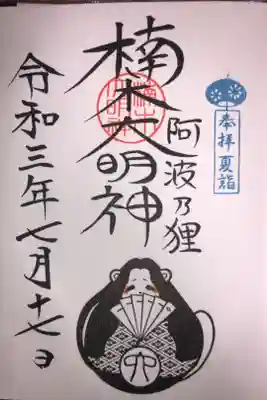 奉拝 夏詣
阿波乃狸
楠木大明神
令和三年七月十七日
六